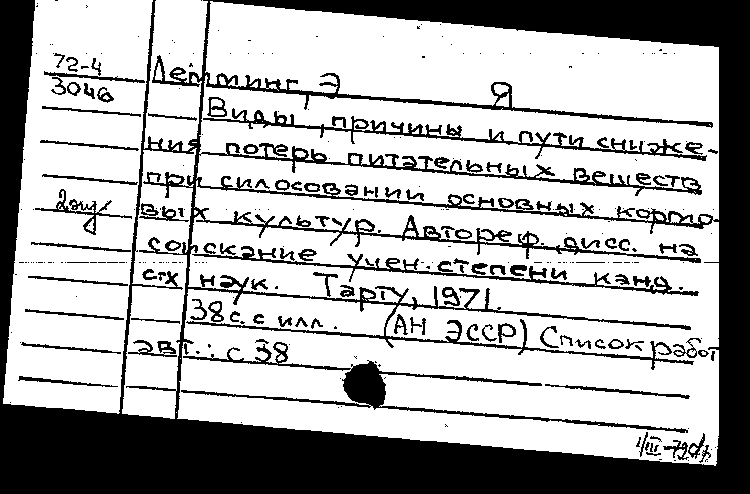 72-4
3046
Лемминг, Э Я
Виды, причины и пути сниже-
ния потерь питательных веществ
при силосовании основных кормо-
2 экз
вых культур. Автореф. дисс. на
соискание учен. степени канд.
с/х наук. Тарту, 1971.
38 с. с илл. (АН ЭССР) Список работ
авт.: с 38